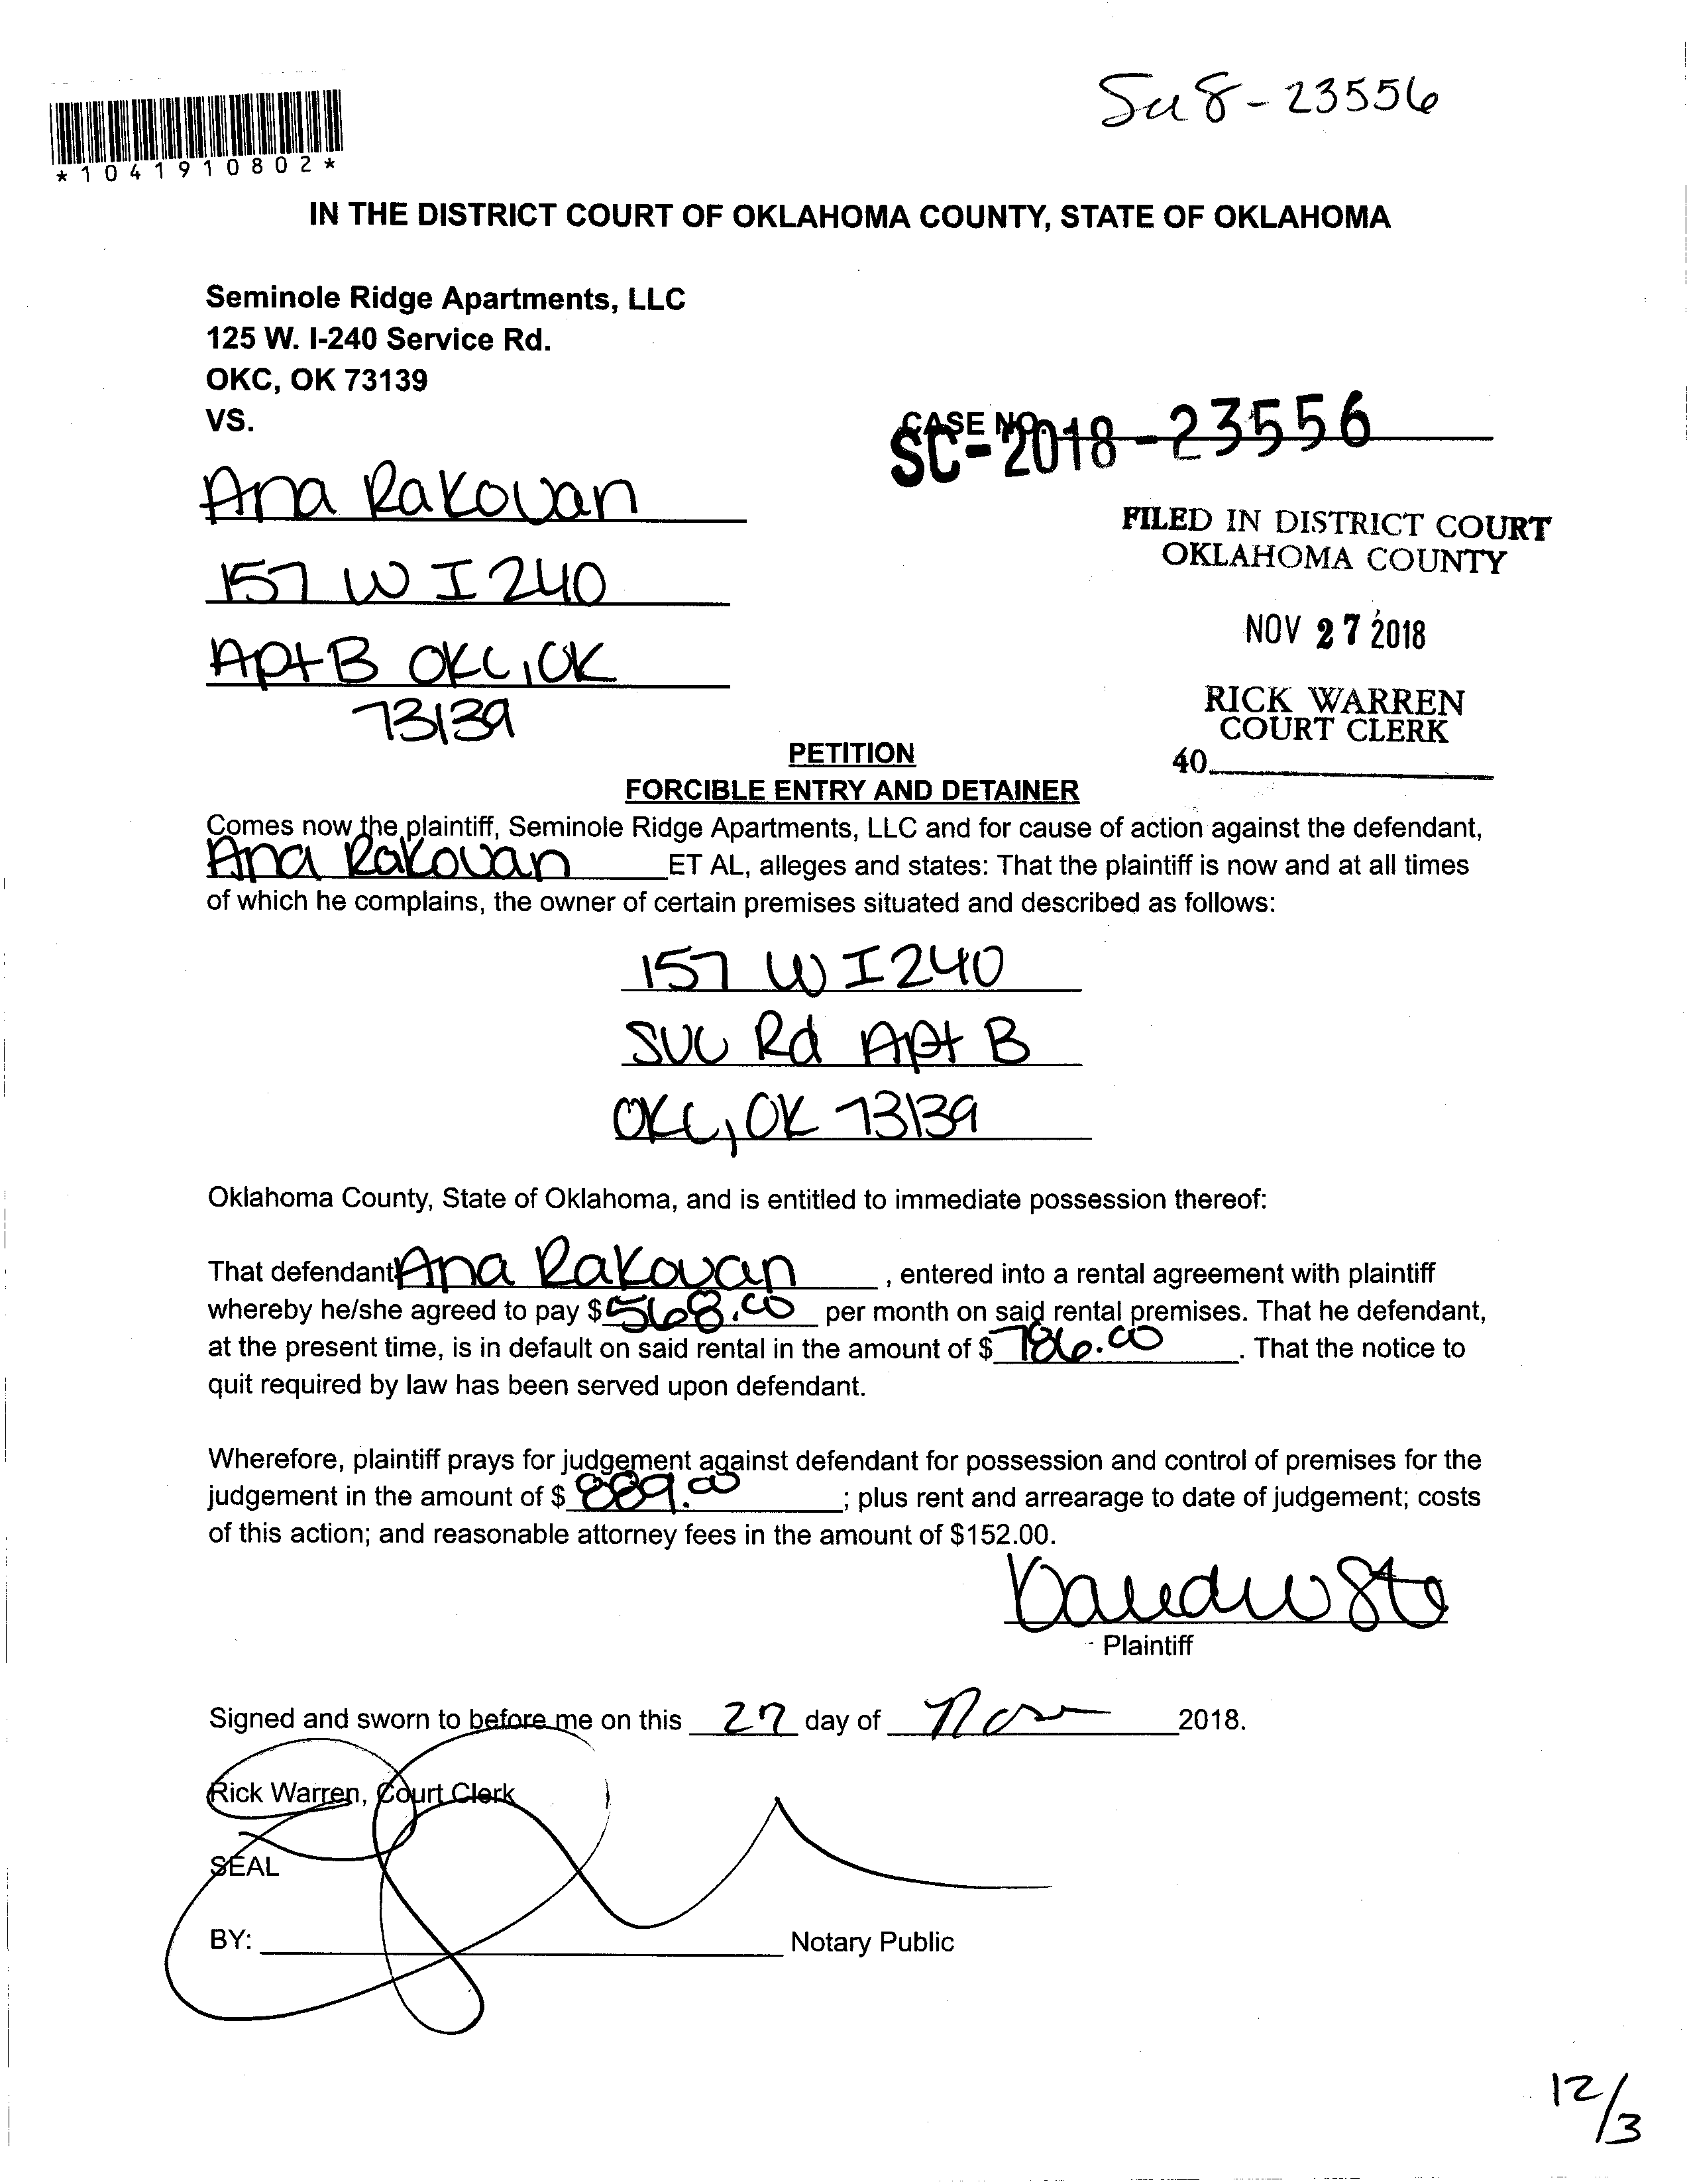 Su8-23556
*1041910802*
IN THE DISTRICT COURT OF OKLAHOMA COUNTY, STATE OF OKLAHOMA
Seminole Ridge Apartments, LLC
125 W. I-240 Service Rd.
OKC, OK 73139
VS.
CASE NO.
SC-2018-23556
Ana Rakovan
157 W I 240
Apt B OKC, OK
73139
FILED IN DISTRICT COURT
OKLAHOMA COUNTY
NOV 27 2018
RICK WARREN
COURT CLERK
40
PETITION
FORCIBLE ENTRY AND DETAINER
Comes now the plaintiff, Seminole Ridge Apartments, LLC and for cause of action against the defendant,
Ana Rakovan ET AL, alleges and states: That the plaintiff is now and at all times
of which he complains, the owner of certain premises situated and described as follows:
157 W I 240
SVC Rd Apt B
OKC, OK 73139
Oklahoma County, State of Oklahoma, and is entitled to immediate possession thereof:
That defendant Ana Rakovan, entered into a rental agreement with plaintiff
whereby he/she agreed to pay $568.00 per month on said rental premises. That he defendant,
at the present time, is in default on said rental in the amount of $786.00. That the notice to
quit required by law has been served upon defendant.
Wherefore, plaintiff prays for judgement against defendant for possession and control of premises for the
judgement in the amount of $889.00; plus rent and arrearage to date of judgement; costs
of this action; and reasonable attorney fees in the amount of $152.00.
Plaintiff
Signed and sworn to before me on this 27 day of Nov 2018.
Rick Warren, Court Clerk
SEAL
BY: Notary Public
12/3